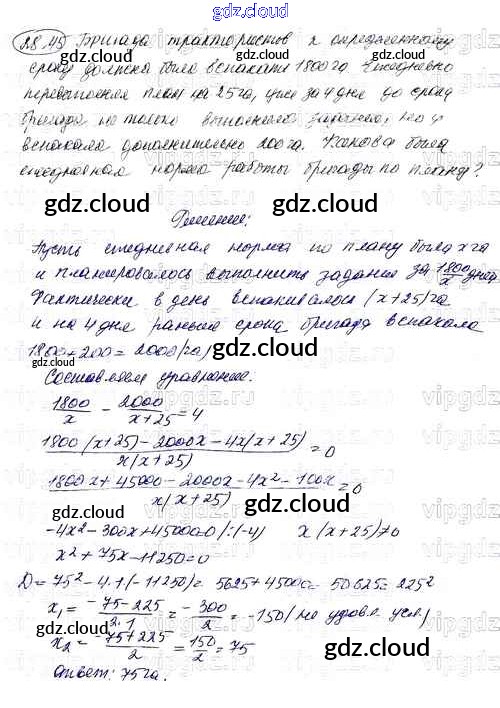 gdz.cloud
28.45 Бригада трактористов к определенному
сроку должна была вспахать 1800 га. Ежедневно
перевыполняя план на 25 га, уже за 4 дня до срока
бригада не только выполнила задание, но и
вспахала дополнительно 200 га. Какова была
ежедневная норма работы бригады по плану?
Решение:
Пусть ежедневная норма по плану была x га
и планировалось выполнить задание за 1800/x дней
Фактически в день вспахивалось (x+25) га
и на 4 дня раньше срока бригада вспахала
1800+200=2000(га)
Составляем уравнение:
1800/x - 2000/(x+25) = 4
(1800(x+25)-2000x-4x(x+25))/(x(x+25)) = 0
(1800x+45000-2000x-4x²-100x)/(x(x+25)) = 0
-4x²-300x+45000=0 /:(-4) x(x+25)≠0
x²+75x-11250=0
D=75²-4·1·(-11250)=5625+45000=50625=225²
x₁=(-75-225)/(2·1)=-300/2=-150(не удовл. усл.)
x₂=(-75+225)/2=150/2=75
Ответ: 75 га.